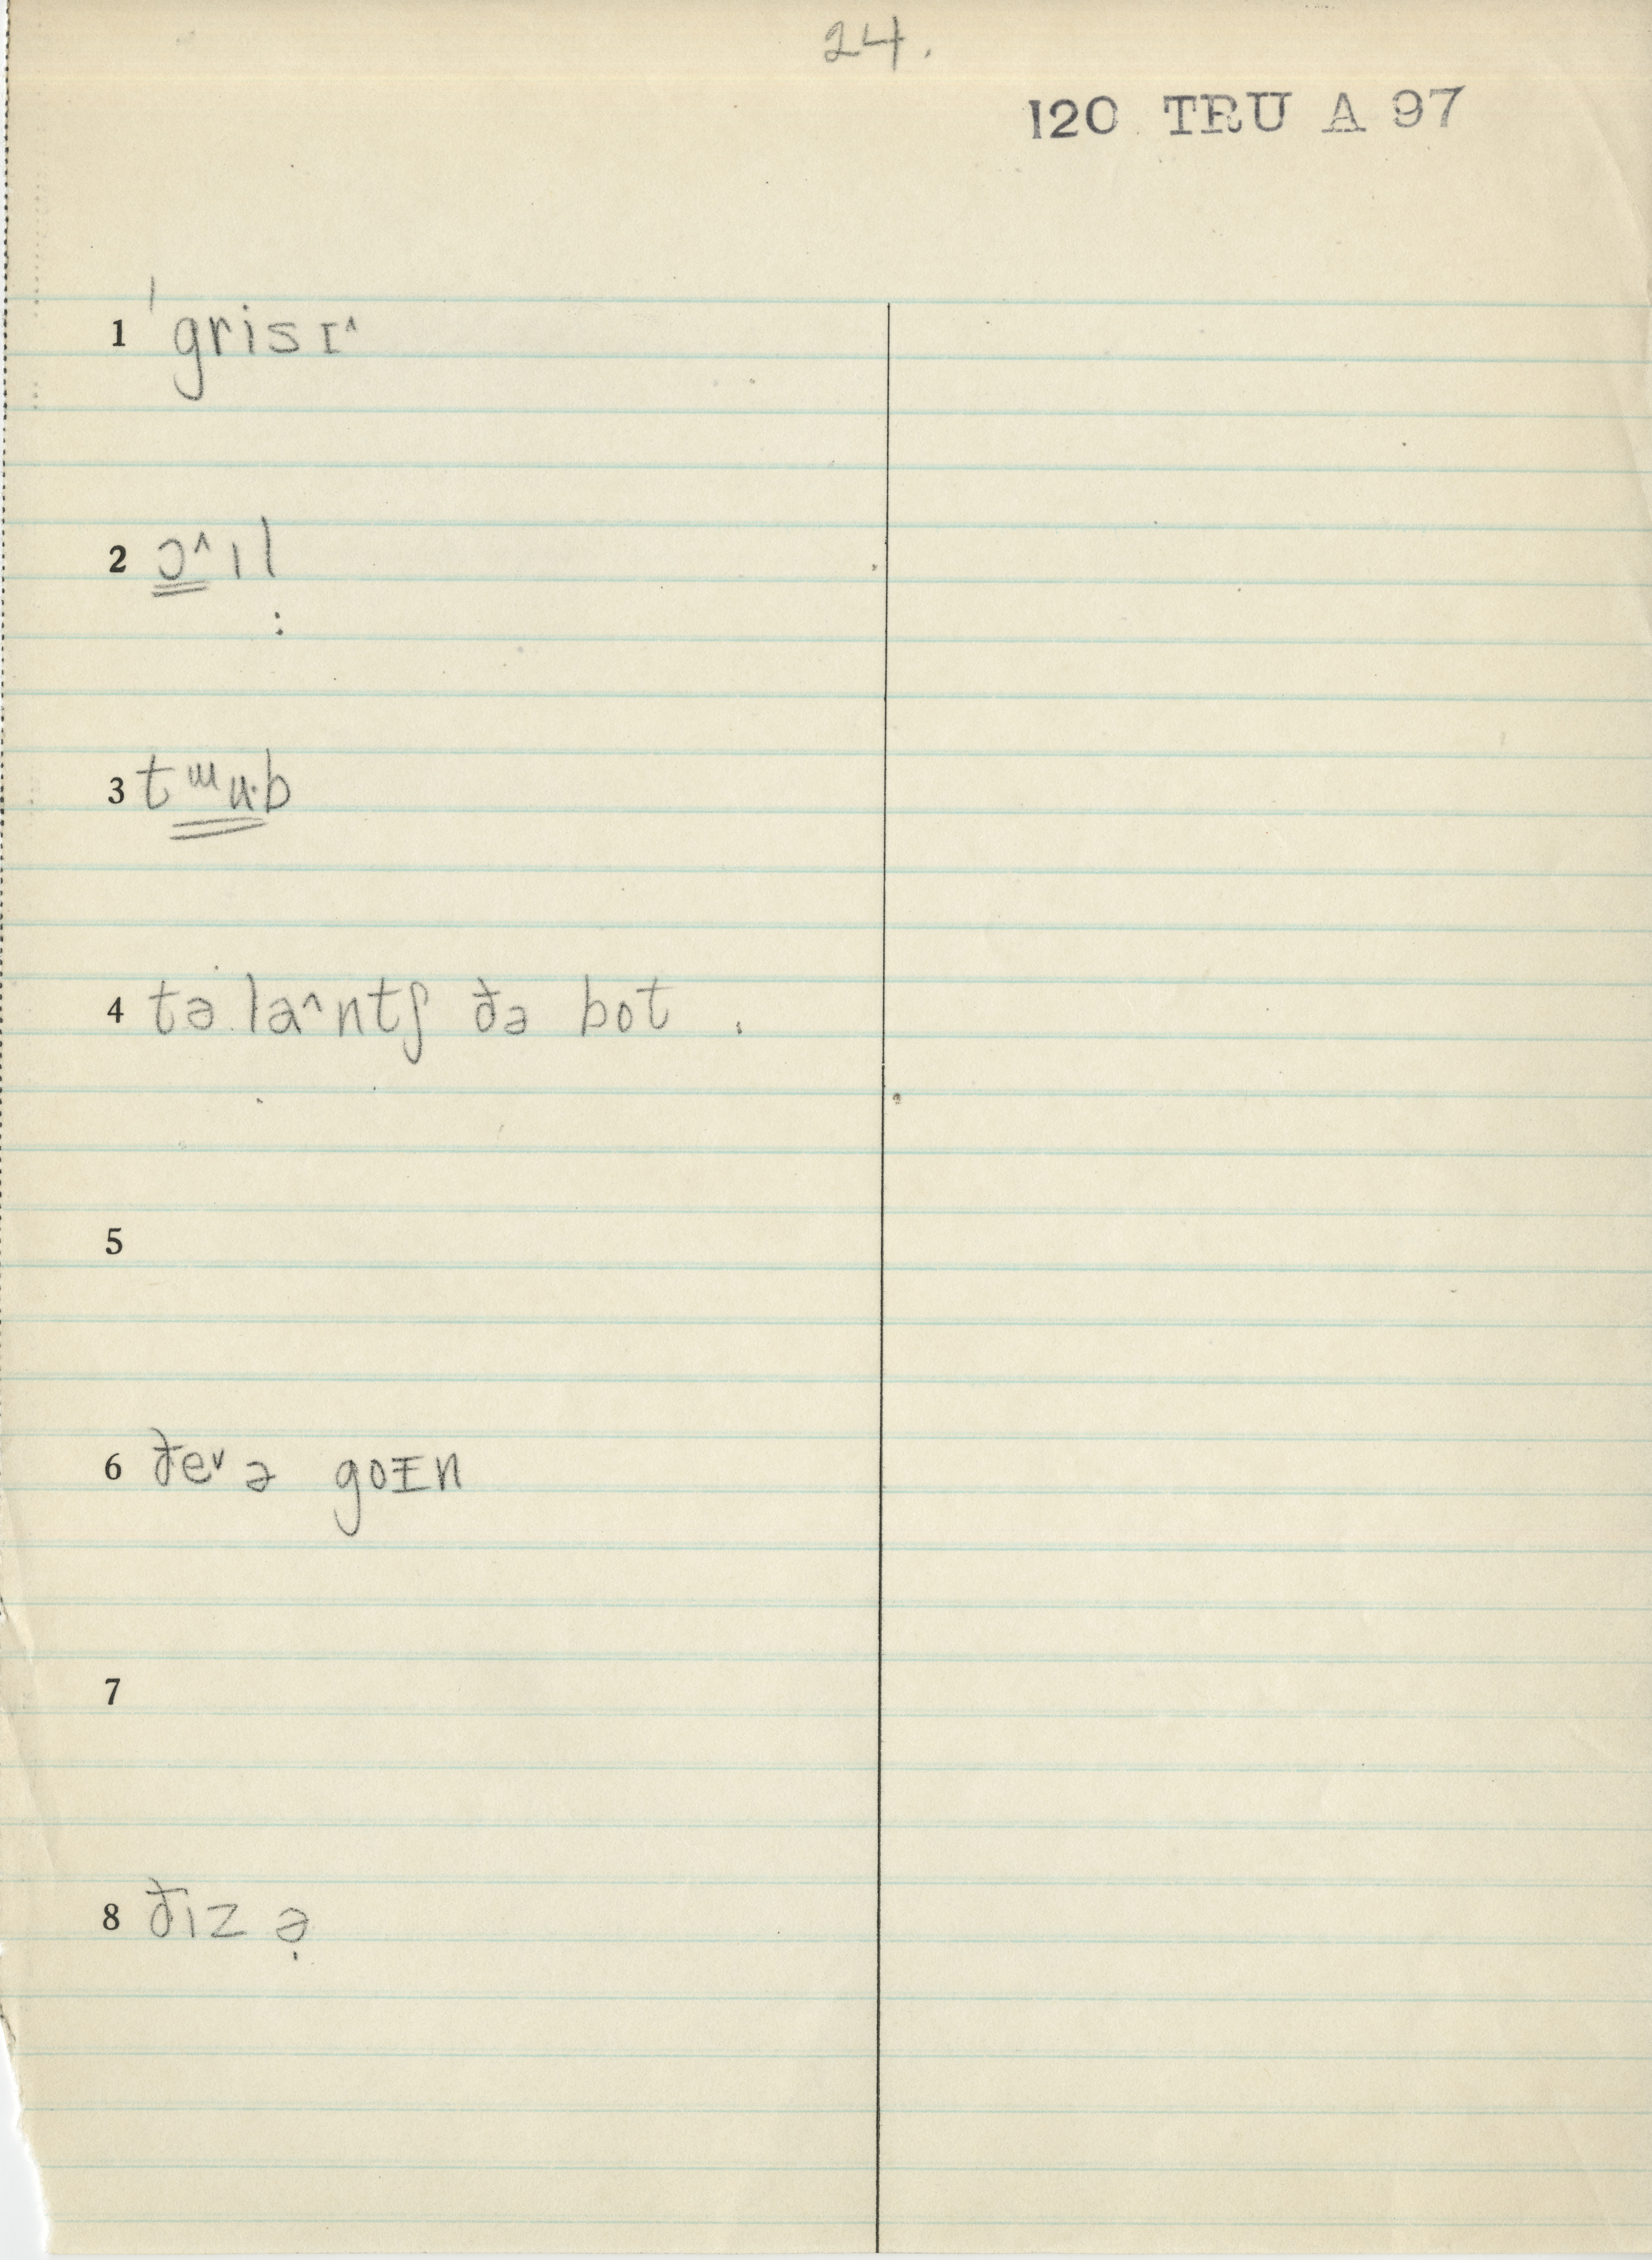 24.
120 TRU A 97
1 ˈgrisɪ^
2 ɔ^ɪl
3 tᵚʉ·b
4 tə la^ntʃ ðə bot
5
6 ðeᵛ ə goᵻn
7
8 ðɪz ə̣